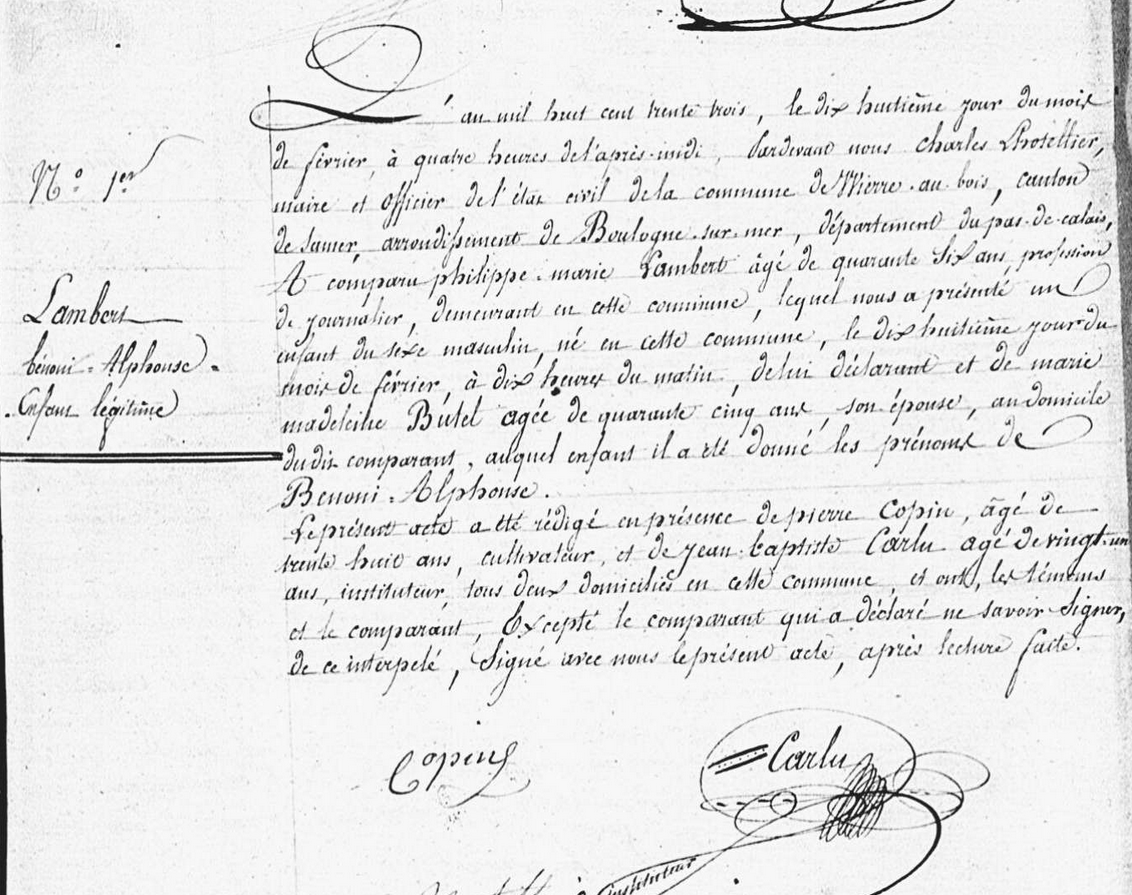 L'an mil huit cent trente trois, le dix huitième jour du mois
de février, à quatre heures de l'après-midi, Pardevant nous Charles Lhotellier,
maire et officier de l'état civil de la commune de Wierre-au-bois, canton
de Samer, arrondissement de Boulogne-sur-mer, département du pas-de-calais,
A comparu philippe-marie Lambert âgé de quarante Six ans, profession
de journalier, demeurant en cette commune, lequel nous a présenté un
enfant du sexe masculin, né en cette commune, le dix huitième jour du
mois de février, à dix heures du matin, de lui déclarant et de marie
madeleine Butel agée de quarante cinq ans, son épouse, au domicile
dudit comparant, auquel enfant il a été donné les prénoms de
Benoni-Alphonse.
Le présent acte a été rédigé en présence de pierre Copin, âgé de
trente huit ans, cultivateur, et de jean-baptiste Carlu agé de vingt-un
ans, instituteur, tous deux domiciliés en cette commune, et ont, les témoins
et le comparant, Excepté le comparant qui a déclaré ne savoir Signer,
de ce interpelé, Signé avec nous le présent acte, après lecture faite.
N.º 1er
Lambert
bénoni-Alphonse-
Enfant légitime
Copin
Carlu
instituteur